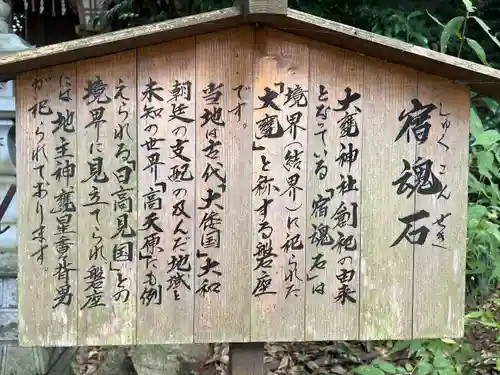 宿魂石
しゅくこんせき
大甕神社創祀の由来
となっている「宿魂石」は
境界(結界)に祀られた
「大甕」と称する磐座
です。
当地は古代「大倭国」大和
朝廷の支配の及んだ地域と
未知の世界「高天原」にも例
えられる「日高見国」との
境界に見立てられ磐座
には地主神甕星香々男
が祀られております